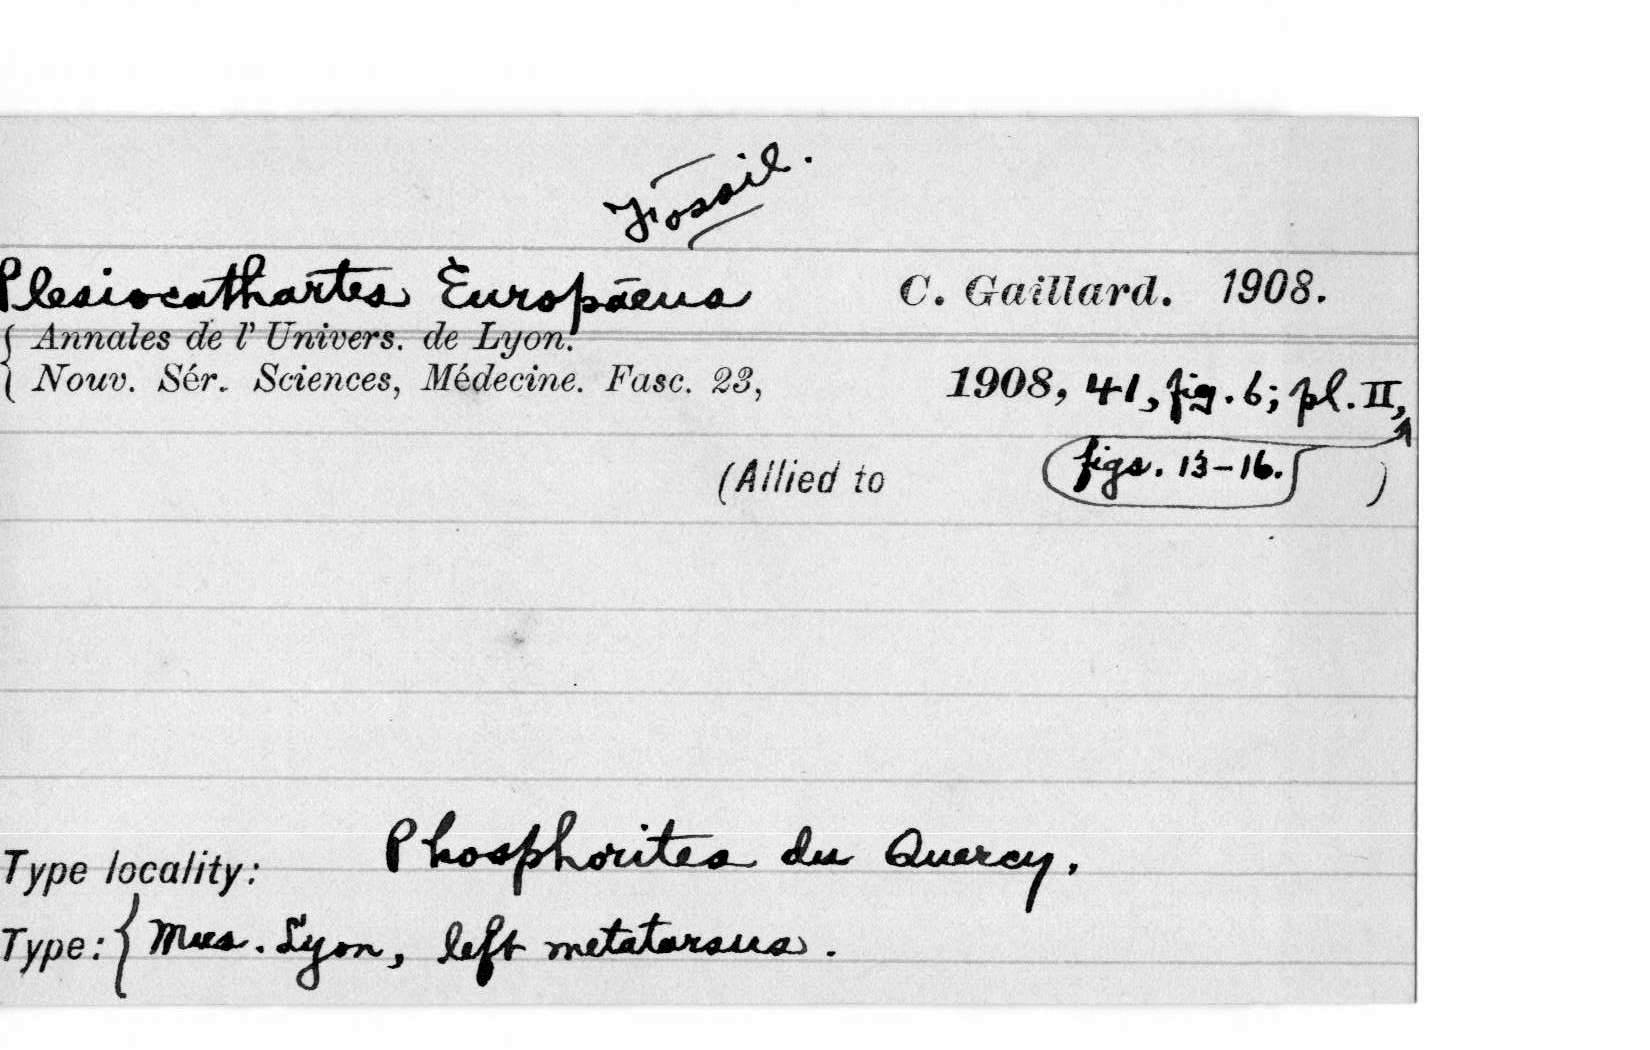 Fossil.
Plesiocathartes Europaeus C. Gaillard. 1908.
{ Annales de l' Univers. de Lyon.
Nouv. Sér. Sciences, Médecine. Fasc. 23, 1908, 41, fig. 6; pl. II,
(Allied to figs. 13-16. )
Type locality: Phosphorites du Quercy.
Type: { Mus. Lyon, left metatarsus.